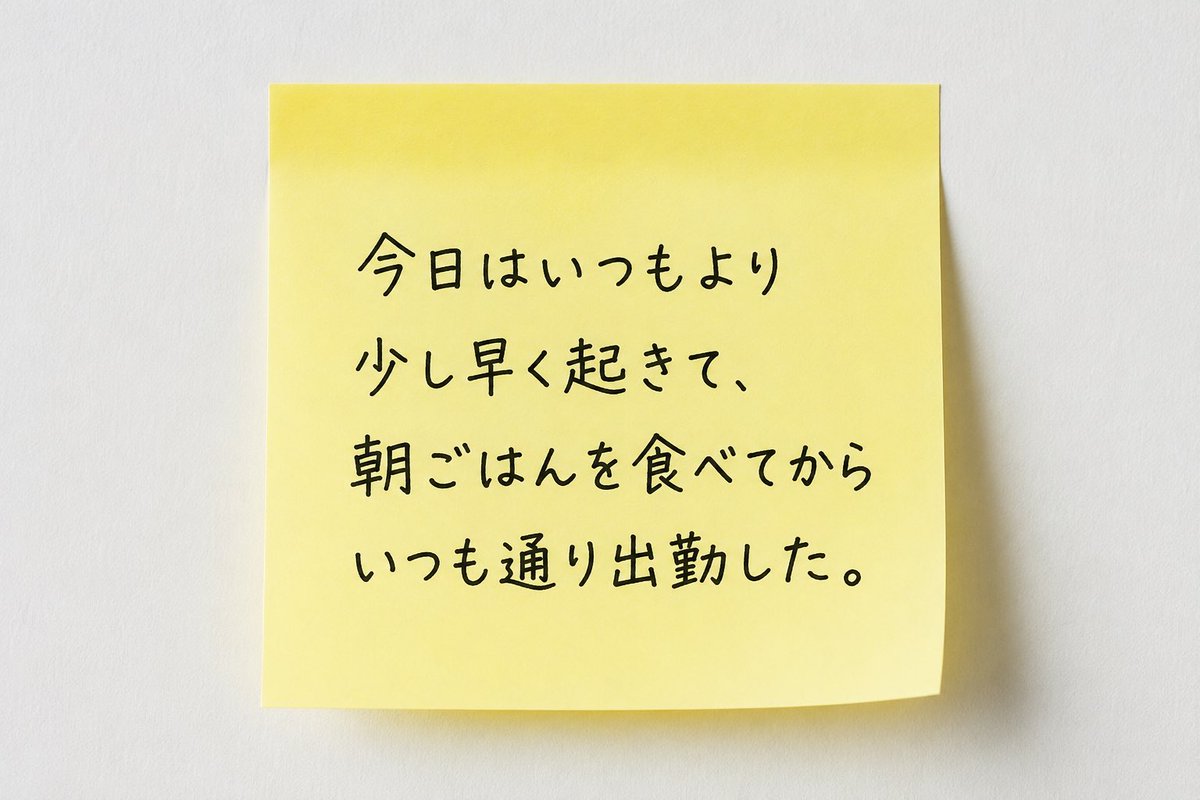 今日はいつもより
少し早く起きて、
朝ごはんを食べてから
いつも通り出勤した。